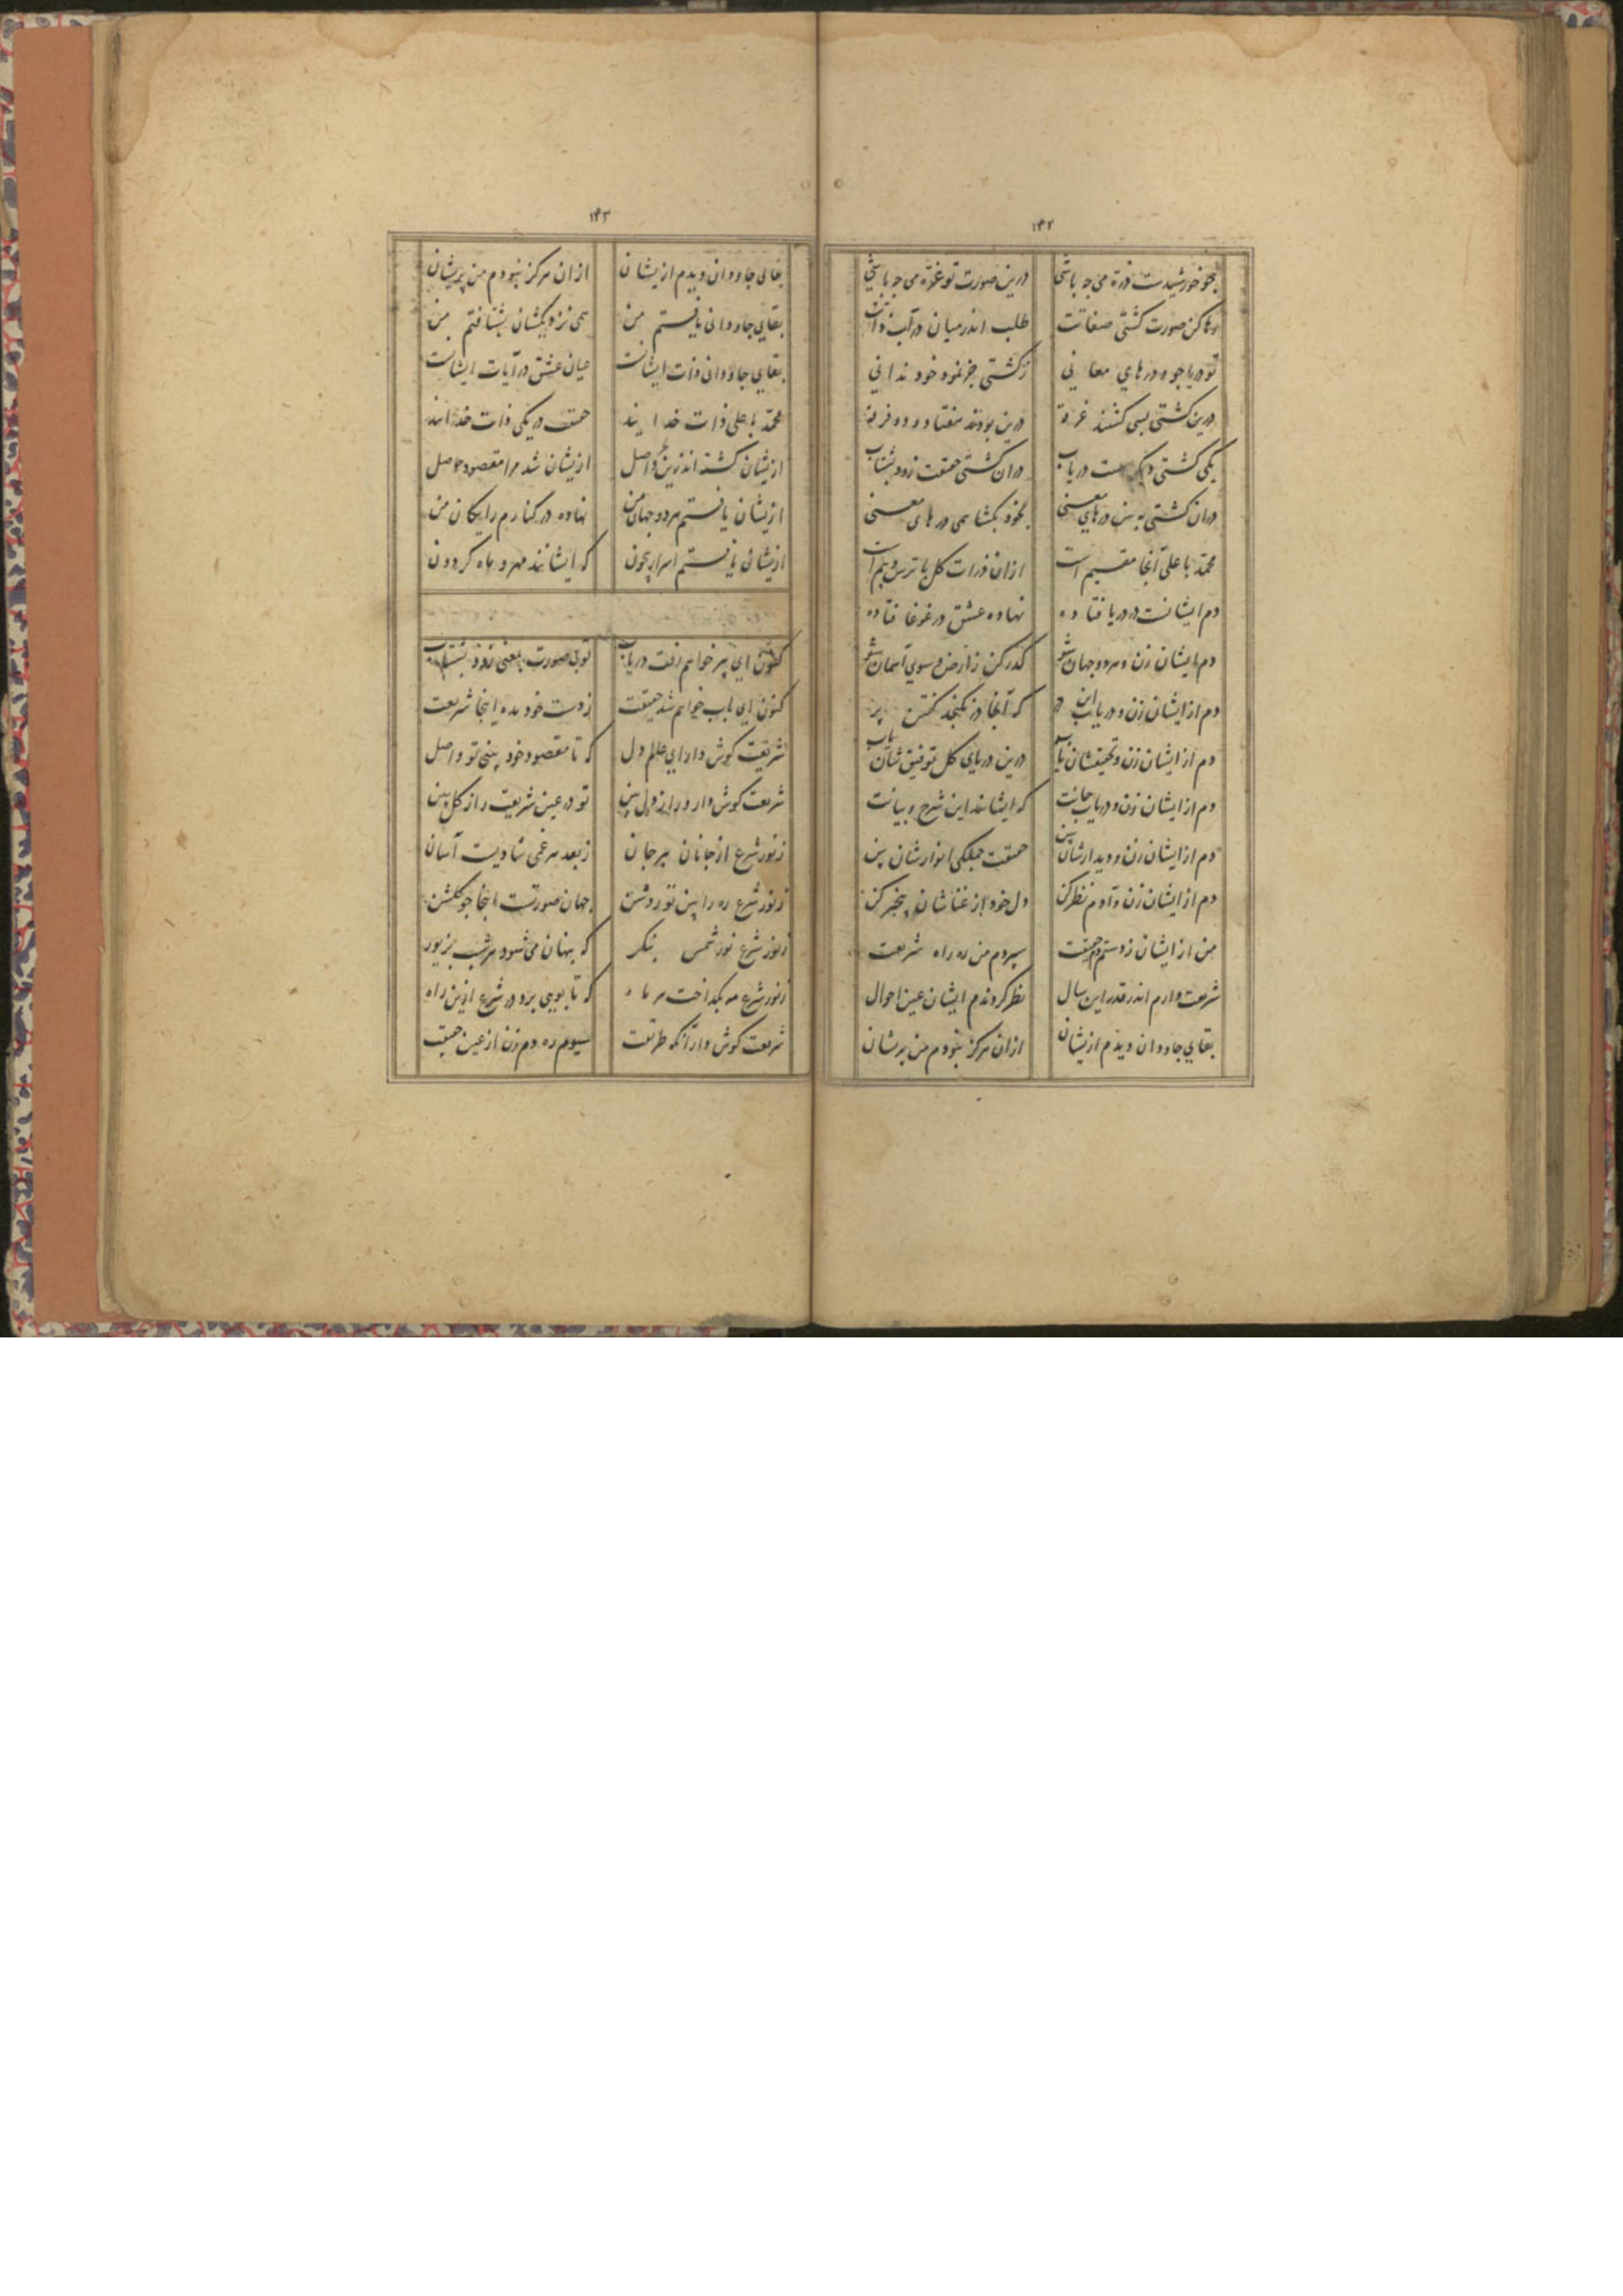 ۱۴۲
چو خورشیدت ذرة می جه باشی درین صورت تو غرّه می جه باشی
رها کن صورت کشتی صفاتت طلب اندر میان در آب ذاتت
تو دریا جو و درهای معانی ز کشتی جز نمود خود ندانی
درین کشتی بسی کشتند غرقه درین بودند هفتاد و دو فرقه
یکی کشتی دیگر هست دریاب دران کشتی حقیقت زود بشتاب
دران کشتی ببین درهای معنی بخود بکشا همی درهای معنی
محمّد با علی آنجا مقیم است ازان ذرات کل با ترس و بیم است
دم ایشانست در دریا فتاده نهاده عشق در غوغا فتاده
دم ایشان زن و هر دو جهان شو کذر کن ز ارض و سوی آسمان شو
دم از ایشان زن و دریاب این در که آنجا در نکنجد کفتن پر
دم از ایشان زن و تحقیقشان یاب درین دریای کل توفیق شان یاب
دم از ایشان زن و دریاب جانت که ایشانند این شرح و بیانت
دم از ایشان زن و دیدارشان بین حقیقت جملکی انوارشان بین
دم از ایشان زن و آدم نظر کن دل خود از غناشان خبر کن
من از ایشان زدستم دم حقیقت سپردم من ره راه شریعت
شریعت دارم اندر قدر این سال نظر کردندم ایشان عین احوال
بقای جاودان دیدم ازیشان ازان هرکز نبودم من پریشان
۱۴۳
بقای جاودان دیدم ازیشان ازان هرکز نبودم من پریشان
بقای جاودانی یافتستم من همی نزدیکشان بشتافتم من
بقای جاودانی ذات ایشانست عیان عشق در آیات ایشانست
محمّد با علی ذات خدایند حقیقت در یکی ذات خدایند
ازیشان کشته اندرین واصل ازیشان شد مرا مقصود حاصل
ازیشان یافتستم هر دو جهان من نهاده در کنارم رایکان من
ازیشان یافتستم اسرار بیچون که ایشانند مهر و ماه کردون
کنون ای پیر خواهم رفت دریاب توبی صورت بمعنی زود بشتاب
کنون ای باب خواهم شد حقیقت ز دست خود مده اینجا شریعت
شریعت کوش دار ای عالم دل که تا مقصود خود بینی تو واصل
شریعت کوش دار و راز دل بین تو در عین شریعت راز کل بین
ز نور شرع از جانان ببر جان ز بعد هر غمی شادیست آسان
ز نور شرع ره را بین تو روشن جهان صورتت اینجا چو کلشن
ز نور شرع نور شمس بنکر که پنهان می شود هر شب بزیور
ز نور شرع مه بکداخت هر ماه که تا بویی برد در شرع ازین راه
شریعت کوش دار آنکه طریقت سیوم ره دم زن از عین حقیقت